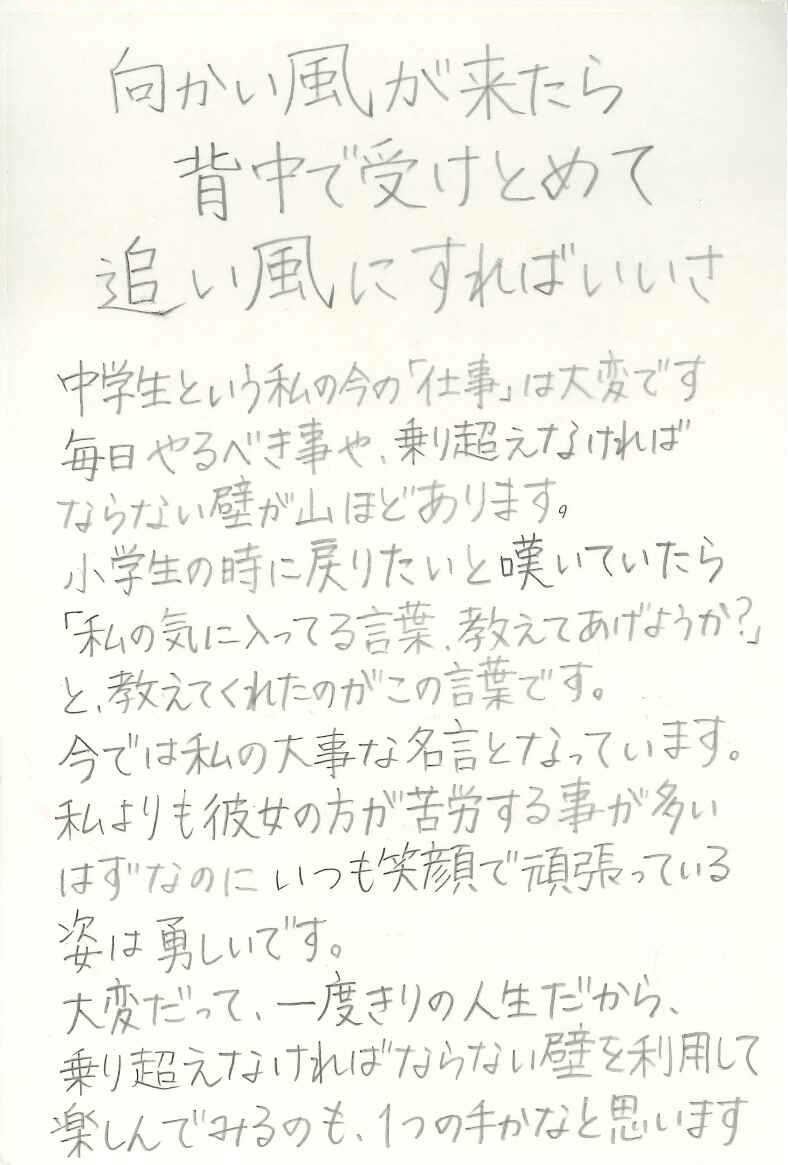 向かい風が来たら
背中で受けとめて
追い風にすればいいさ
中学生という私の今の「仕事」は大変です
毎日やるべき事や、乗り超えなければ
ならない壁が山ほどあります。
小学生の時に戻りたいと嘆いていたら
「私の気に入ってる言葉、教えてあげようか?」
と、教えてくれたのがこの言葉です。
今では私の大事な名言となっています。
私よりも彼女の方が苦労する事が多い
はずなのにいつも笑顔で頑張っている
姿は勇しいです。
大変だって、一度きりの人生だから、
乗り超えなければならない壁を利用して
楽しんでみるのも、1つの手かなと思います